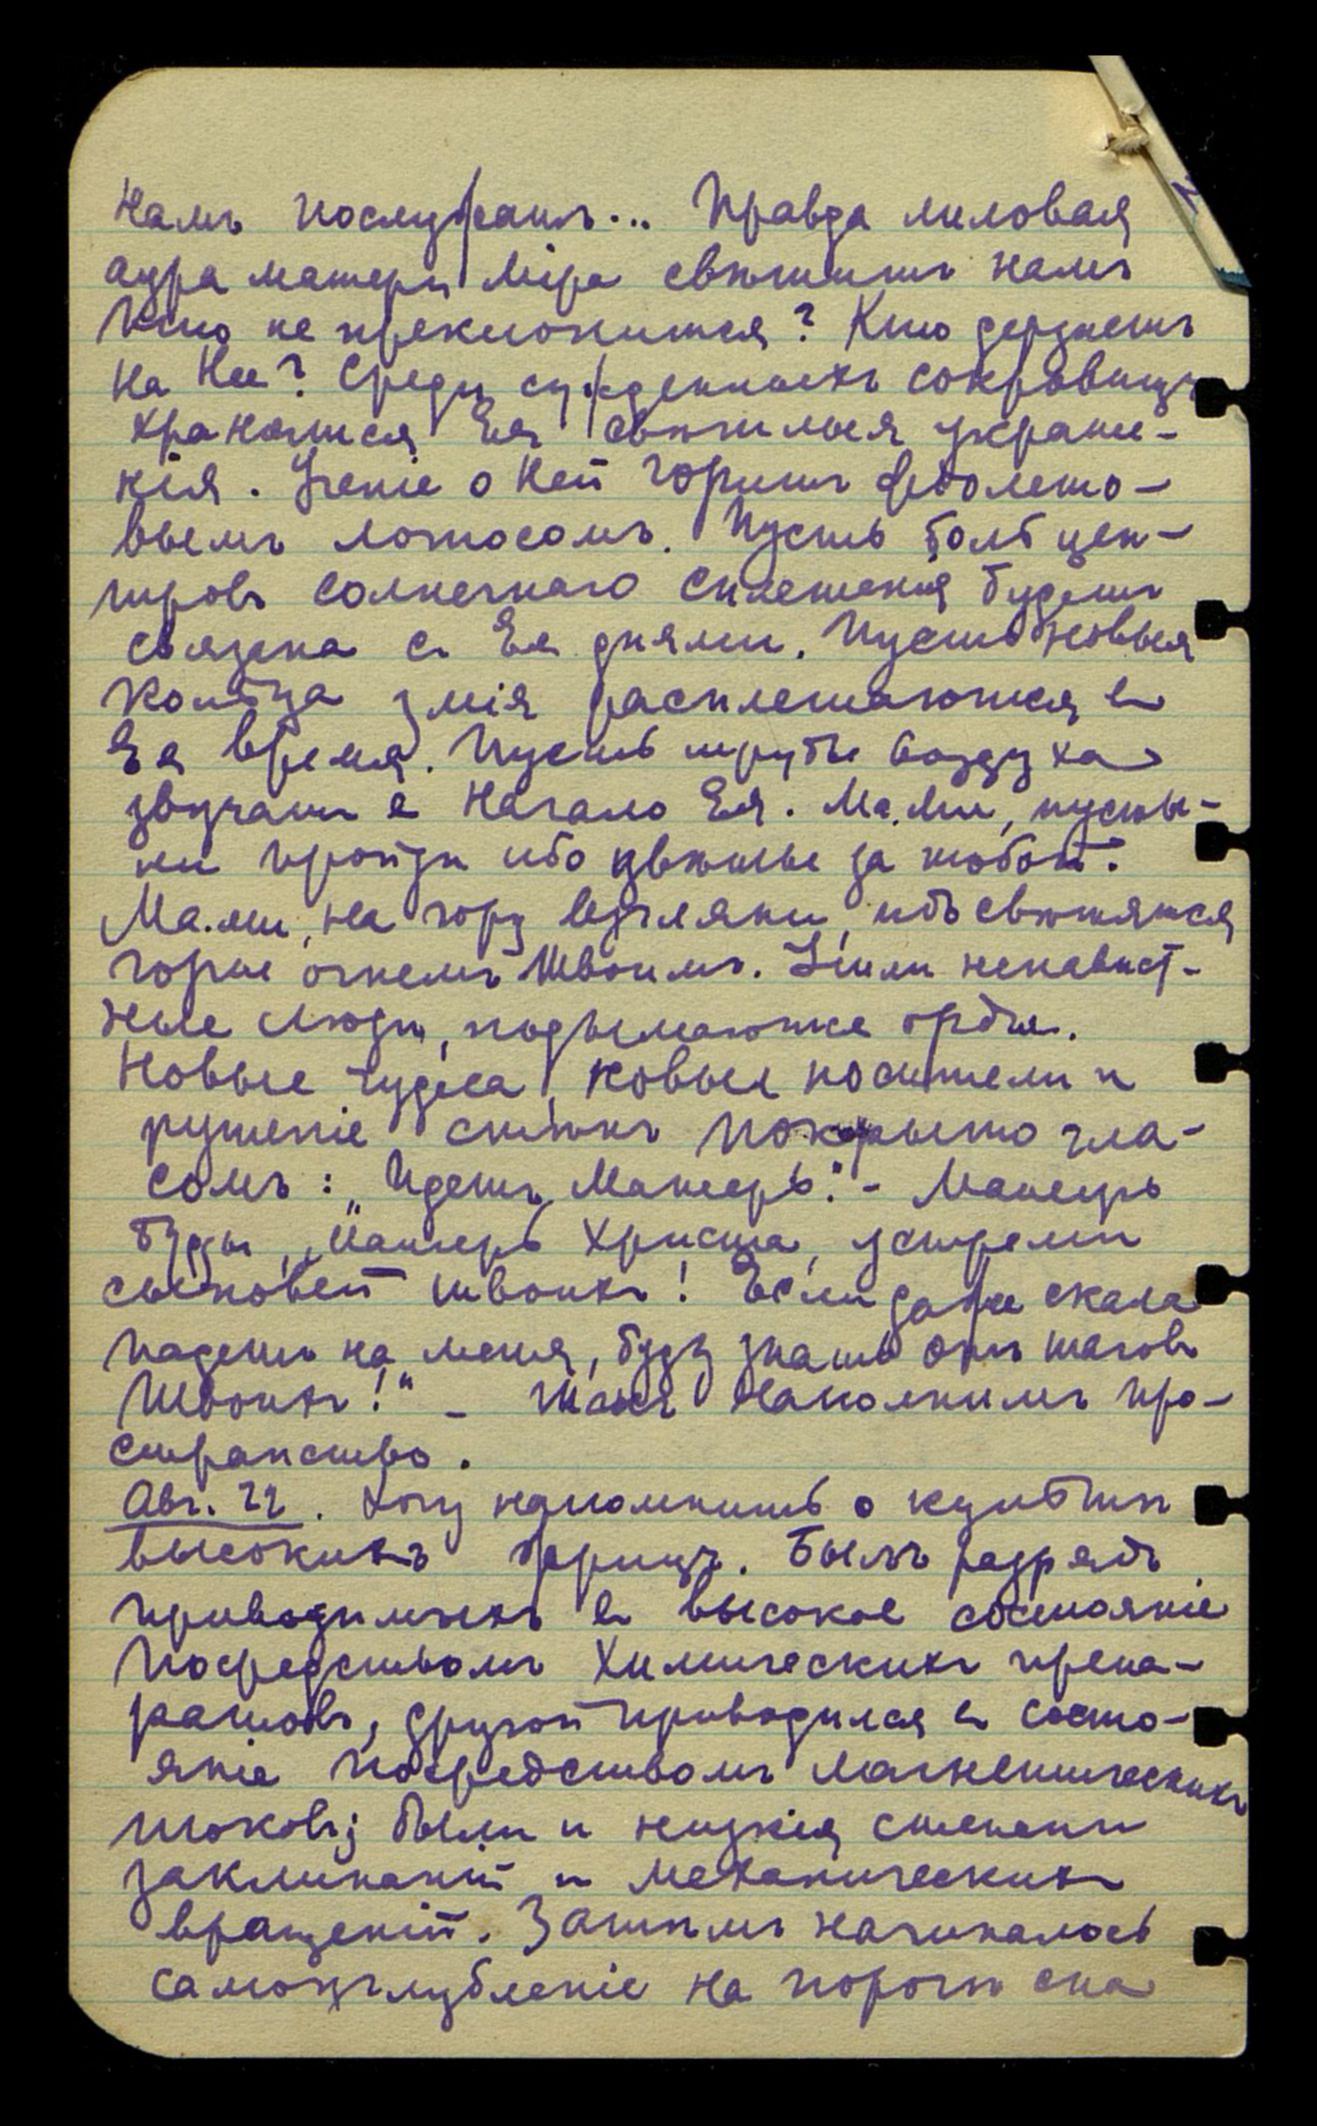 намъ послужатъ... Правда лиловая
аура матери Міра свѣтитъ намъ
Кто не преклонится? Кто дерзнетъ
на Нее? Среди сужденныхъ сокровищъ
хранятся Ея свѣтлыя украше-
нія. Ученіе о Ней горитъ фіолето-
вымъ лотосомъ. Пусть боль цен-
тровъ солнечнаго сплетенія будетъ
связана съ Ея днями. Пусть новыя
кольца змія расплетаются въ
Ея время. Пусть трубы воздуха
звучатъ въ Начало Ея. Ма.ми, пусты-
ни пройди ибо цвѣты за тобой.
Ма.ми, на гору взгляни, ибо свѣтятся
горы огнемъ Твоимъ. Ушли ненавист-
ные люди, подымаются орды.
Новые чудеса, новые носители и
рушеніе стѣнъ покрыто гла-
сомъ: „Идетъ Матерь." - Матерь
Будды, „Матерь Христа, устреми
сыновей твоихъ! Если даже скала
падетъ на меня, буду знать отъ шаговъ
Твоихъ!" - Такъ наполнимъ про-
странство.
Авг. 22. Хочу напомнить о культѣ
высокихъ жрицъ. Былъ разрядъ
приводимыхъ въ высокое состояніе
посредствомъ химическихъ препа-
ратовъ, другой приводился въ состо-
яніе посредствомъ магнетическихъ
токовъ; были и низкія степени
заклинаній и механическихъ
вращеній. Затѣмъ начиналось
самоуглубленіе на порогѣ сна